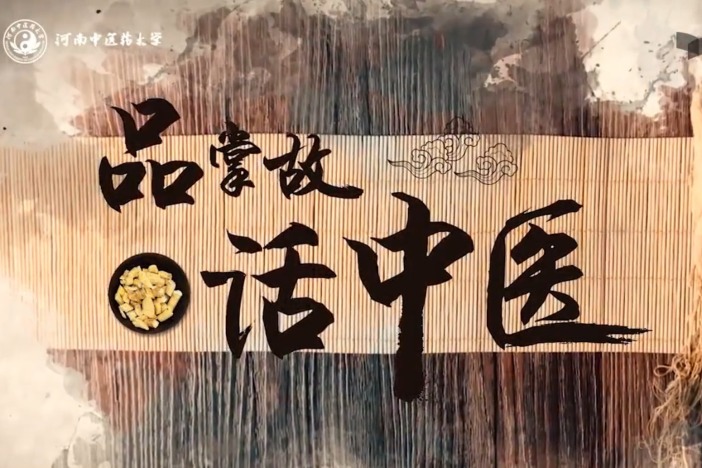 河南中医药大学
品掌故
话中医